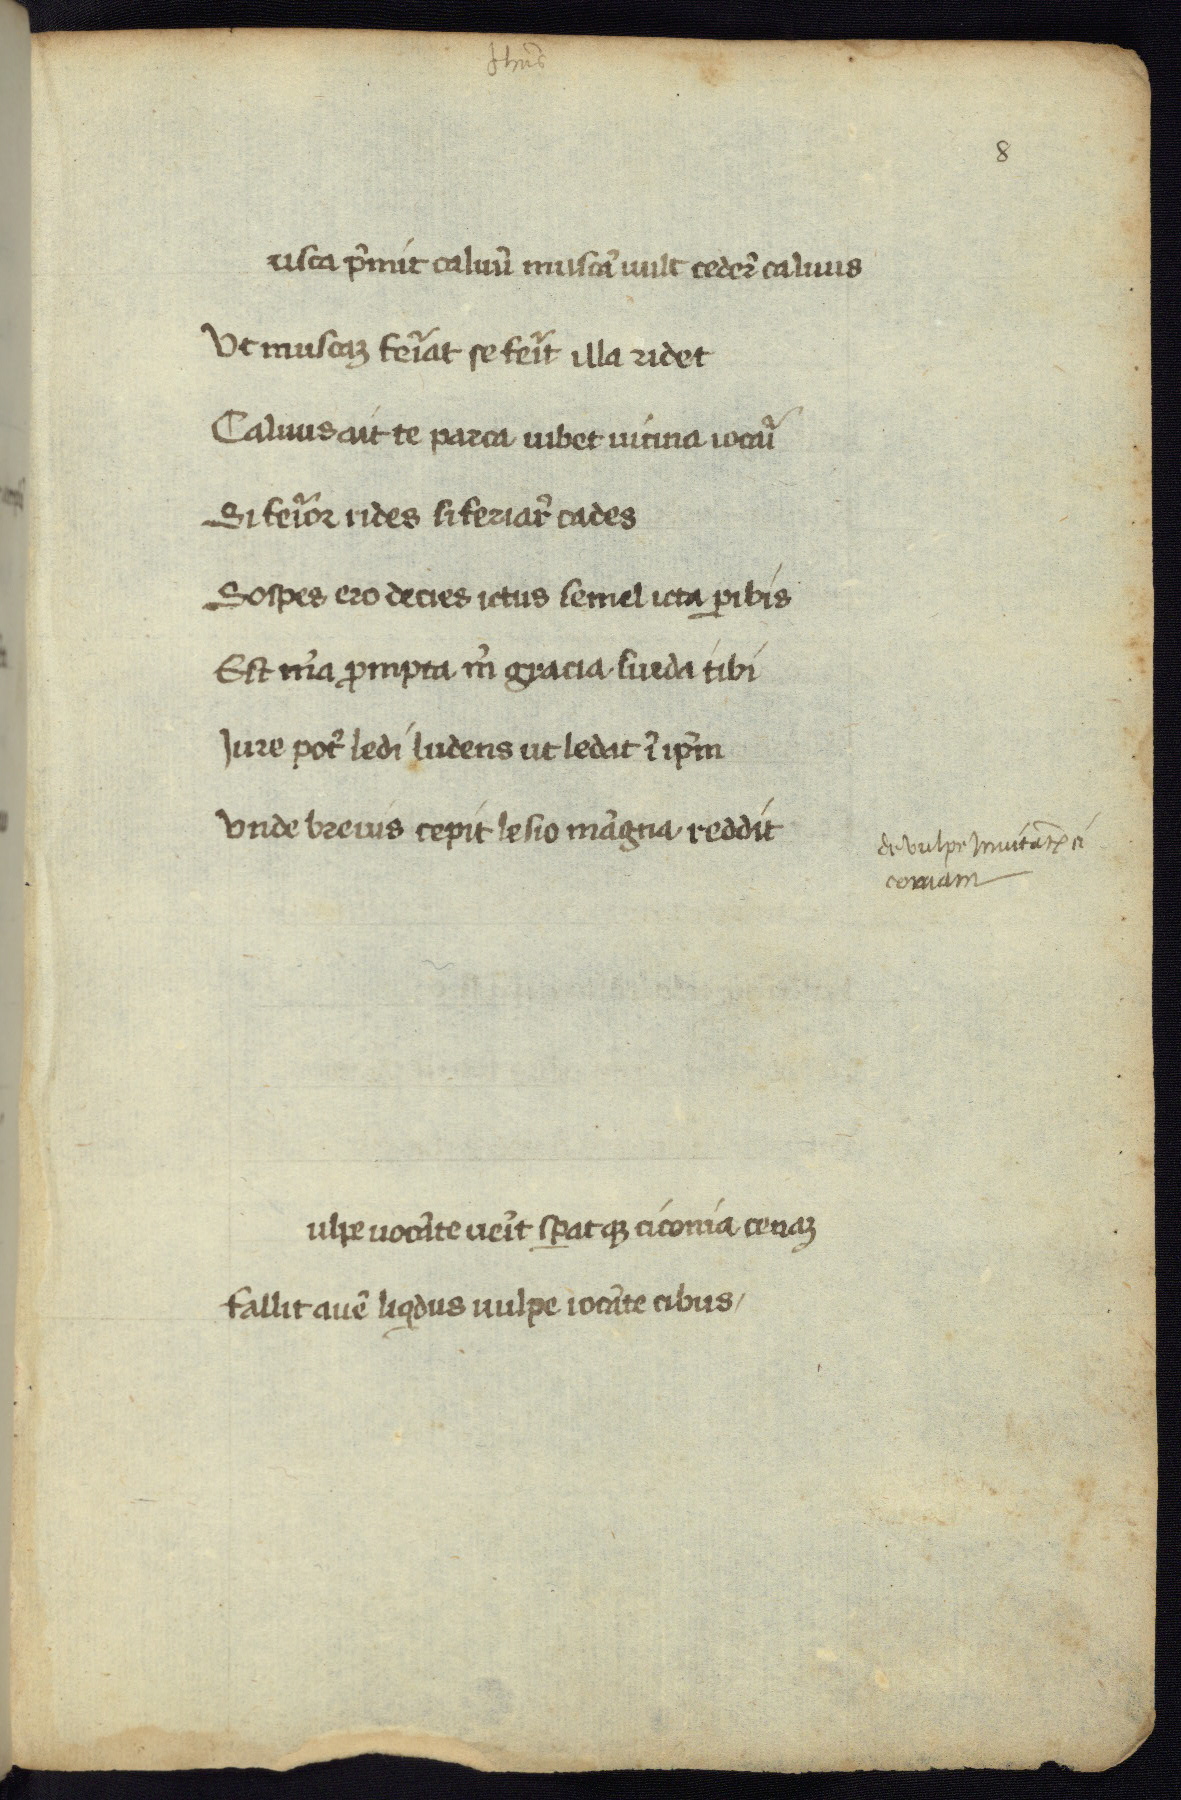 Jhus̄
8
usca p̄mit caluū muscā uult ceder̄ caluus
Vt muscaꝫ fei᷑at se feīt illa ridet
Caluus ait te parca uibet uicina iocat᷑
Si fei᷑or rides si feriar̄ cades
Sospes ero decies ictus semel icta ꝑibis
Est m̄a ꝓmpta m̄ gracia surda tibi
Jure pot̄ ledi ludens ut ledat ī ip̄m
Vnde breuis cepit lesio māgna reddit
de vulpe Jnuitāte ci
coniam
ulpe uocāte uēit sꝑat qꝫ ciconia cenaꝫ
fallit auē liq̄dus uulpe iocāte cibus/